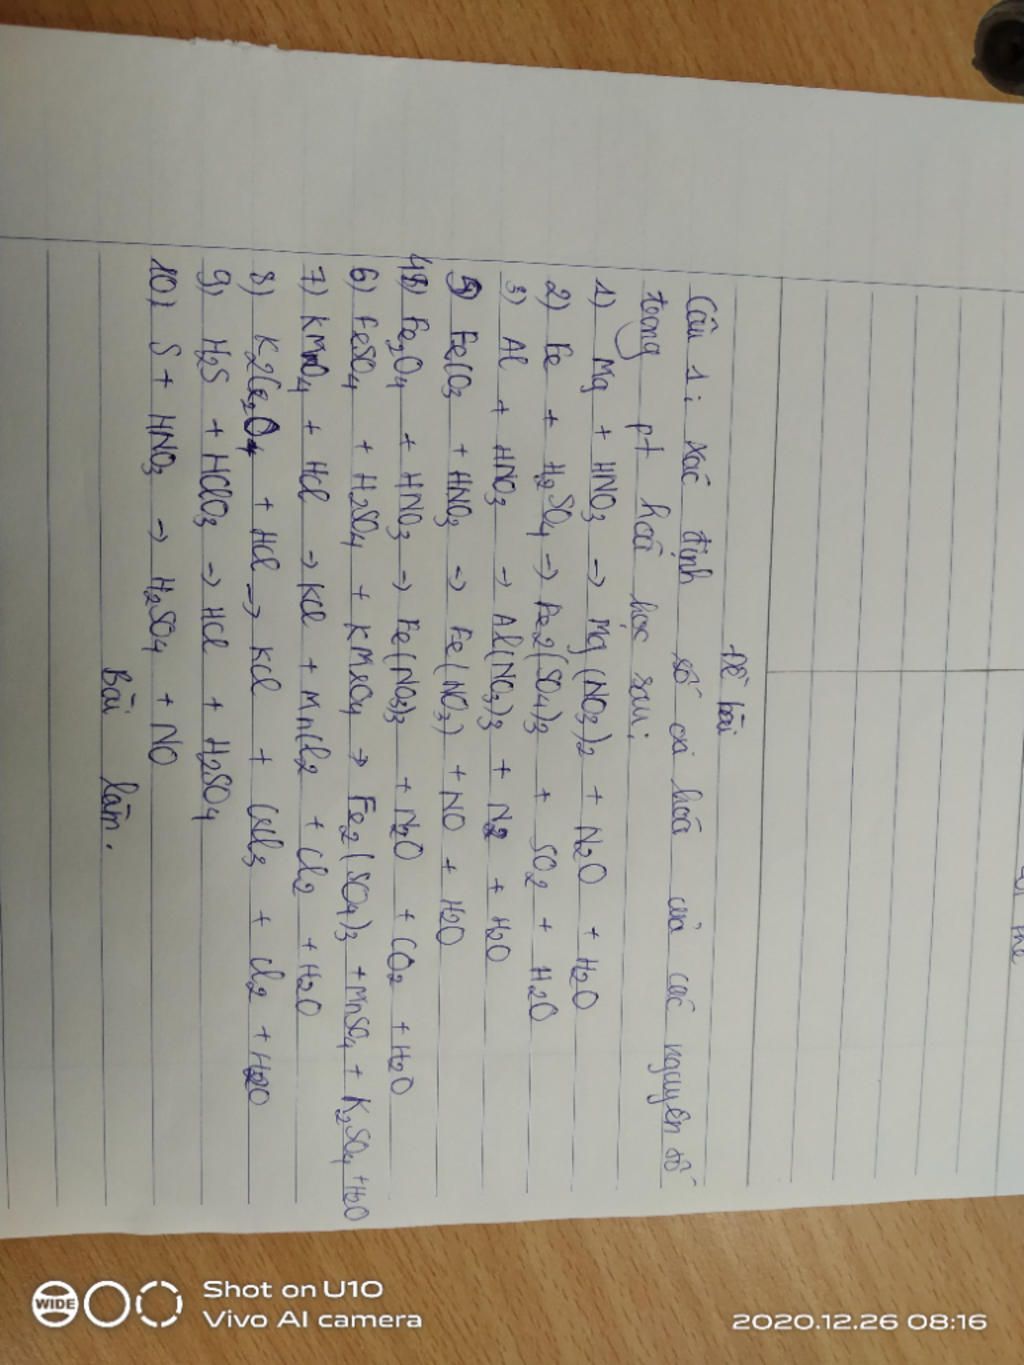 Đề bài
Câu 1: xác định số oxi hoá của các nguyên tố
trong pt hoá học sau:
1) Mg + HNO3 → Mg(NO3)2 + N2O + H2O
2) Fe + H2SO4 → Fe2(SO4)3 + SO2 + H2O
3) Al + HNO3 → Al(NO3)3 + N2 + H2O
5) FeCO3 + HNO3 → Fe(NO3) + NO + H2O
4) Fe2O4 + HNO3 → Fe(NO3)3 + N2O + CO2 + H2O
6) FeSO4 + H2SO4 + KMnO4 → Fe2(SO4)3 + MnSO4 + K2SO4 + H2O
7) KMnO4 + HCl → KCl + MnCl2 + Cl2 + H2O
8) K2Cr2O4 + HCl → KCl + CrCl3 + Cl2 + H2O
9) H2S + HClO3 → HCl + H2SO4
10) S + HNO3 → H2SO4 + NO
Bài làm.
Shot on U10
WIDE
Vivo AI camera
2020.12.26 08:16